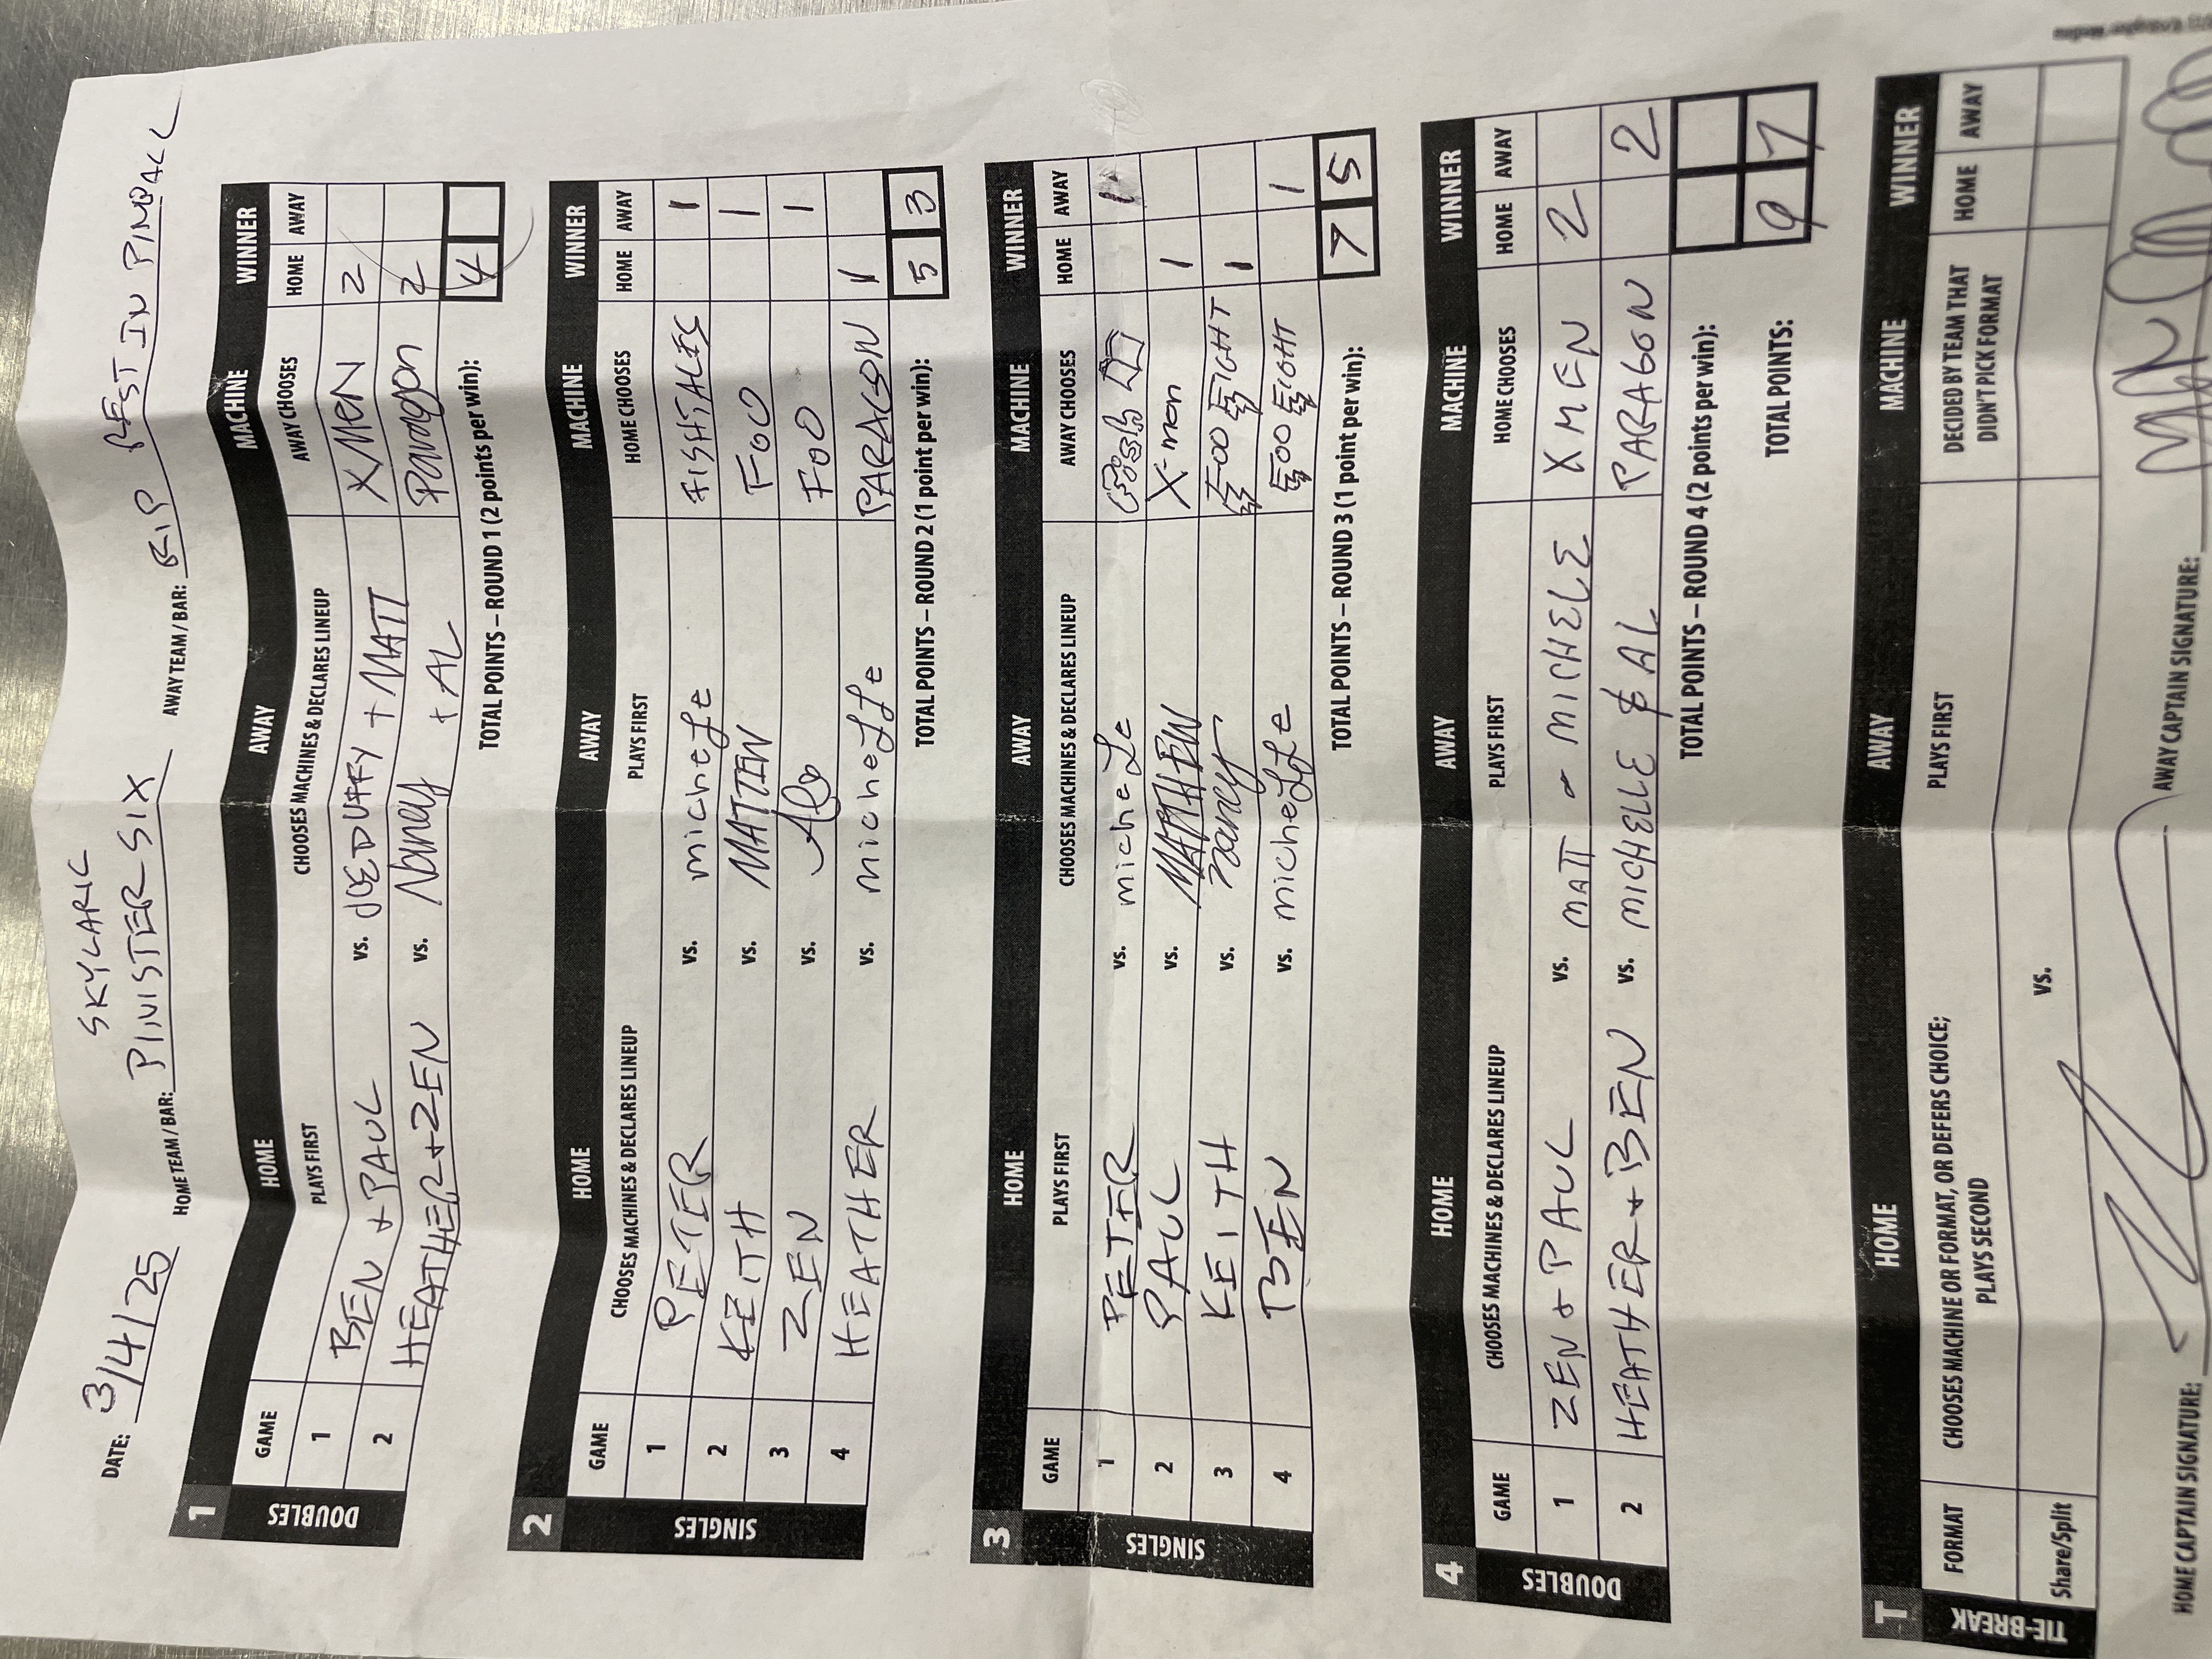 SKYLARK
DATE: 3/4/25 HOME TEAM / BAR: PINISTER SIX AWAY TEAM / BAR: RIP REST IN PINBALL
1 HOME AWAY MACHINE WINNER
GAME PLAYS FIRST CHOOSES MACHINES & DECLARES LINEUP AWAY CHOOSES HOME AWAY
DOUBLES
1 BEN + PAUL vs. JEDUFFY + MATT XMEN 2
2 HEATHER + ZEN vs. Nancy + AL Paragon 2
TOTAL POINTS – ROUND 1 (2 points per win): 4
2 HOME AWAY MACHINE WINNER
GAME CHOOSES MACHINES & DECLARES LINEUP PLAYS FIRST HOME CHOOSES HOME AWAY
SINGLES
1 PETER vs. micheLe FISHTALES 1
2 KEITH vs. MATTEW FOO 1
3 ZEN vs. FOO 1
4 HEATHER vs. micheLLe PARAGON 1
TOTAL POINTS – ROUND 2 (1 point per win): 5 3
3 HOME AWAY MACHINE WINNER
GAME PLAYS FIRST CHOOSES MACHINES & DECLARES LINEUP AWAY CHOOSES HOME AWAY
SINGLES
1 PETER vs. micheLe 1
2 PAUL vs. MATTHEW X-men 1
3 KEITH vs. nancy FOO FIGHT 1
4 BEN vs. micheLLe FOO FIGHT 1
TOTAL POINTS – ROUND 3 (1 point per win): 7 5
4 HOME AWAY MACHINE WINNER
GAME CHOOSES MACHINES & DECLARES LINEUP PLAYS FIRST HOME CHOOSES HOME AWAY
DOUBLES
1 ZEN + PAUL vs. MATT + MICHELE XMEN 2
2 HEATHER + BEN vs. MICHELLE & AL PARAGON 2
TOTAL POINTS – ROUND 4 (2 points per win):
TOTAL POINTS: 9 7
T HOME AWAY MACHINE WINNER
FORMAT CHOOSES MACHINE OR FORMAT, OR DEFERS CHOICE; PLAYS SECOND PLAYS FIRST DECIDED BY TEAM THAT DIDN'T PICK FORMAT HOME AWAY
TIE-BREAK
Share/Split vs.
HOME CAPTAIN SIGNATURE: AWAY CAPTAIN SIGNATURE: